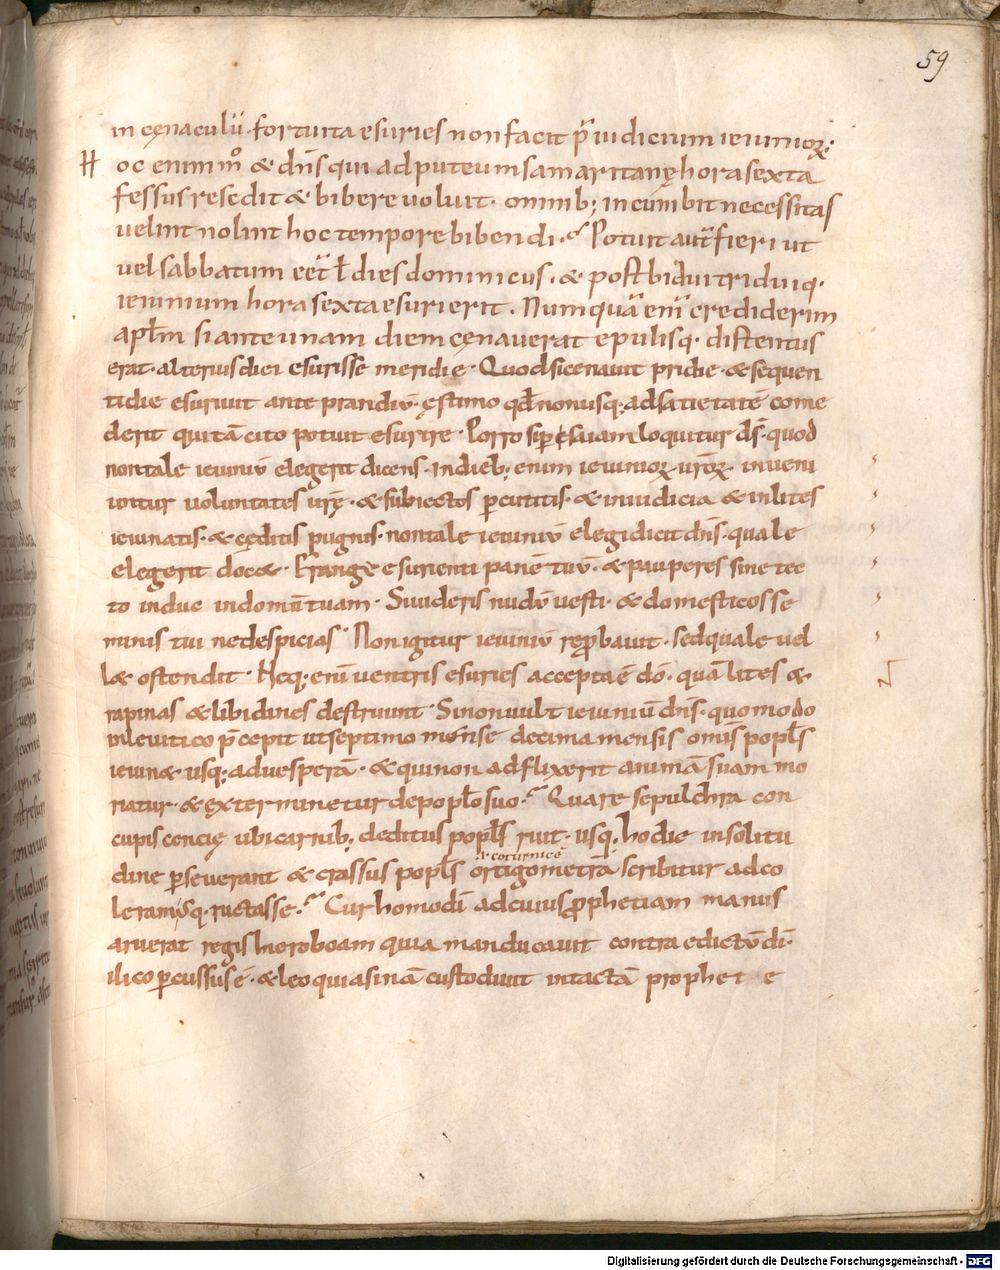 59
in cęnaculū. fortuita esuries non facit p̄iudicium ieiunioꝝ.
Hoc enim m̊ & dn̄s qui ad puteum samaritanę hora sexta
fessus resedit & bibere voluit. omnib; incumbit necessitas
velint nolint hoc tempore bibendi. Potuit aut̄ fieri ut
vel sabbatum eēt ł dies dominicus. & post bidui triduiq.
ieiunium hora sexta esurierit. Numquā enī crediderim
apłm si ante unam diem cęnaverat epulisq. distentus
erat. alterius diei esurisse meridię. Quod si cenavit pridie. & sequen
ti die esurivit ante prandiū. ęstimo qđ non usq; ad satietatē come
derit qui tā cito potuit esurire. Porro sup̱ esuiam loquitur ds̄. quod
non tale ieiuniū elegerit dicens. In dieb; enim ieiunioꝝ vr̄oꝝ. inveni
untur voluntates vrę̄. & subiectos p̱cutitis. & in iudicia & in lites
ieiunatis. & cęditis pugnis. non tale ieiuniū elegi dicit dn̄s. quale
elegerit doc&. Frange esurienti panē tuū. & pauperes sine tec
to induc in domū tuam. Si videris nudū vesti. & domesticos se
minis tui ne despicias. Non igitur ieiuniū rep̱bavit. sed quale vel
l& ostendit. Hęcq; enī ventris esuries accepta ē dō. quā lites &
rapinas & libidines destruunt. Si non vult ieiuniū dn̄s. quomodo
in levitico p̄cepit ut septimo mense decima mensis om̄is popłs
ieiun& usq; ad vesperā. & qui non adflixerit animā suam mo
riatur. & exterminetur de popło suo. Quare sepulchra con
cupiscencię ubi carnib; deditus popłs ruit. usq; hodie in solitu
dine p̱severant & crassus popłs ortigometrā scribitur ad co
.i. coturnicē
leramusq. ructasse. Cur homo dī ad cuius ꝓphetiam manus
aruerat regis hieroboam quia manducavit contra edictū dī.
ilico p̱cussus ē. & leo qui asinā custodivit intactā prophet e
Digitalisierung gefördert durch die Deutsche Forschungsgemeinschaft - DFG